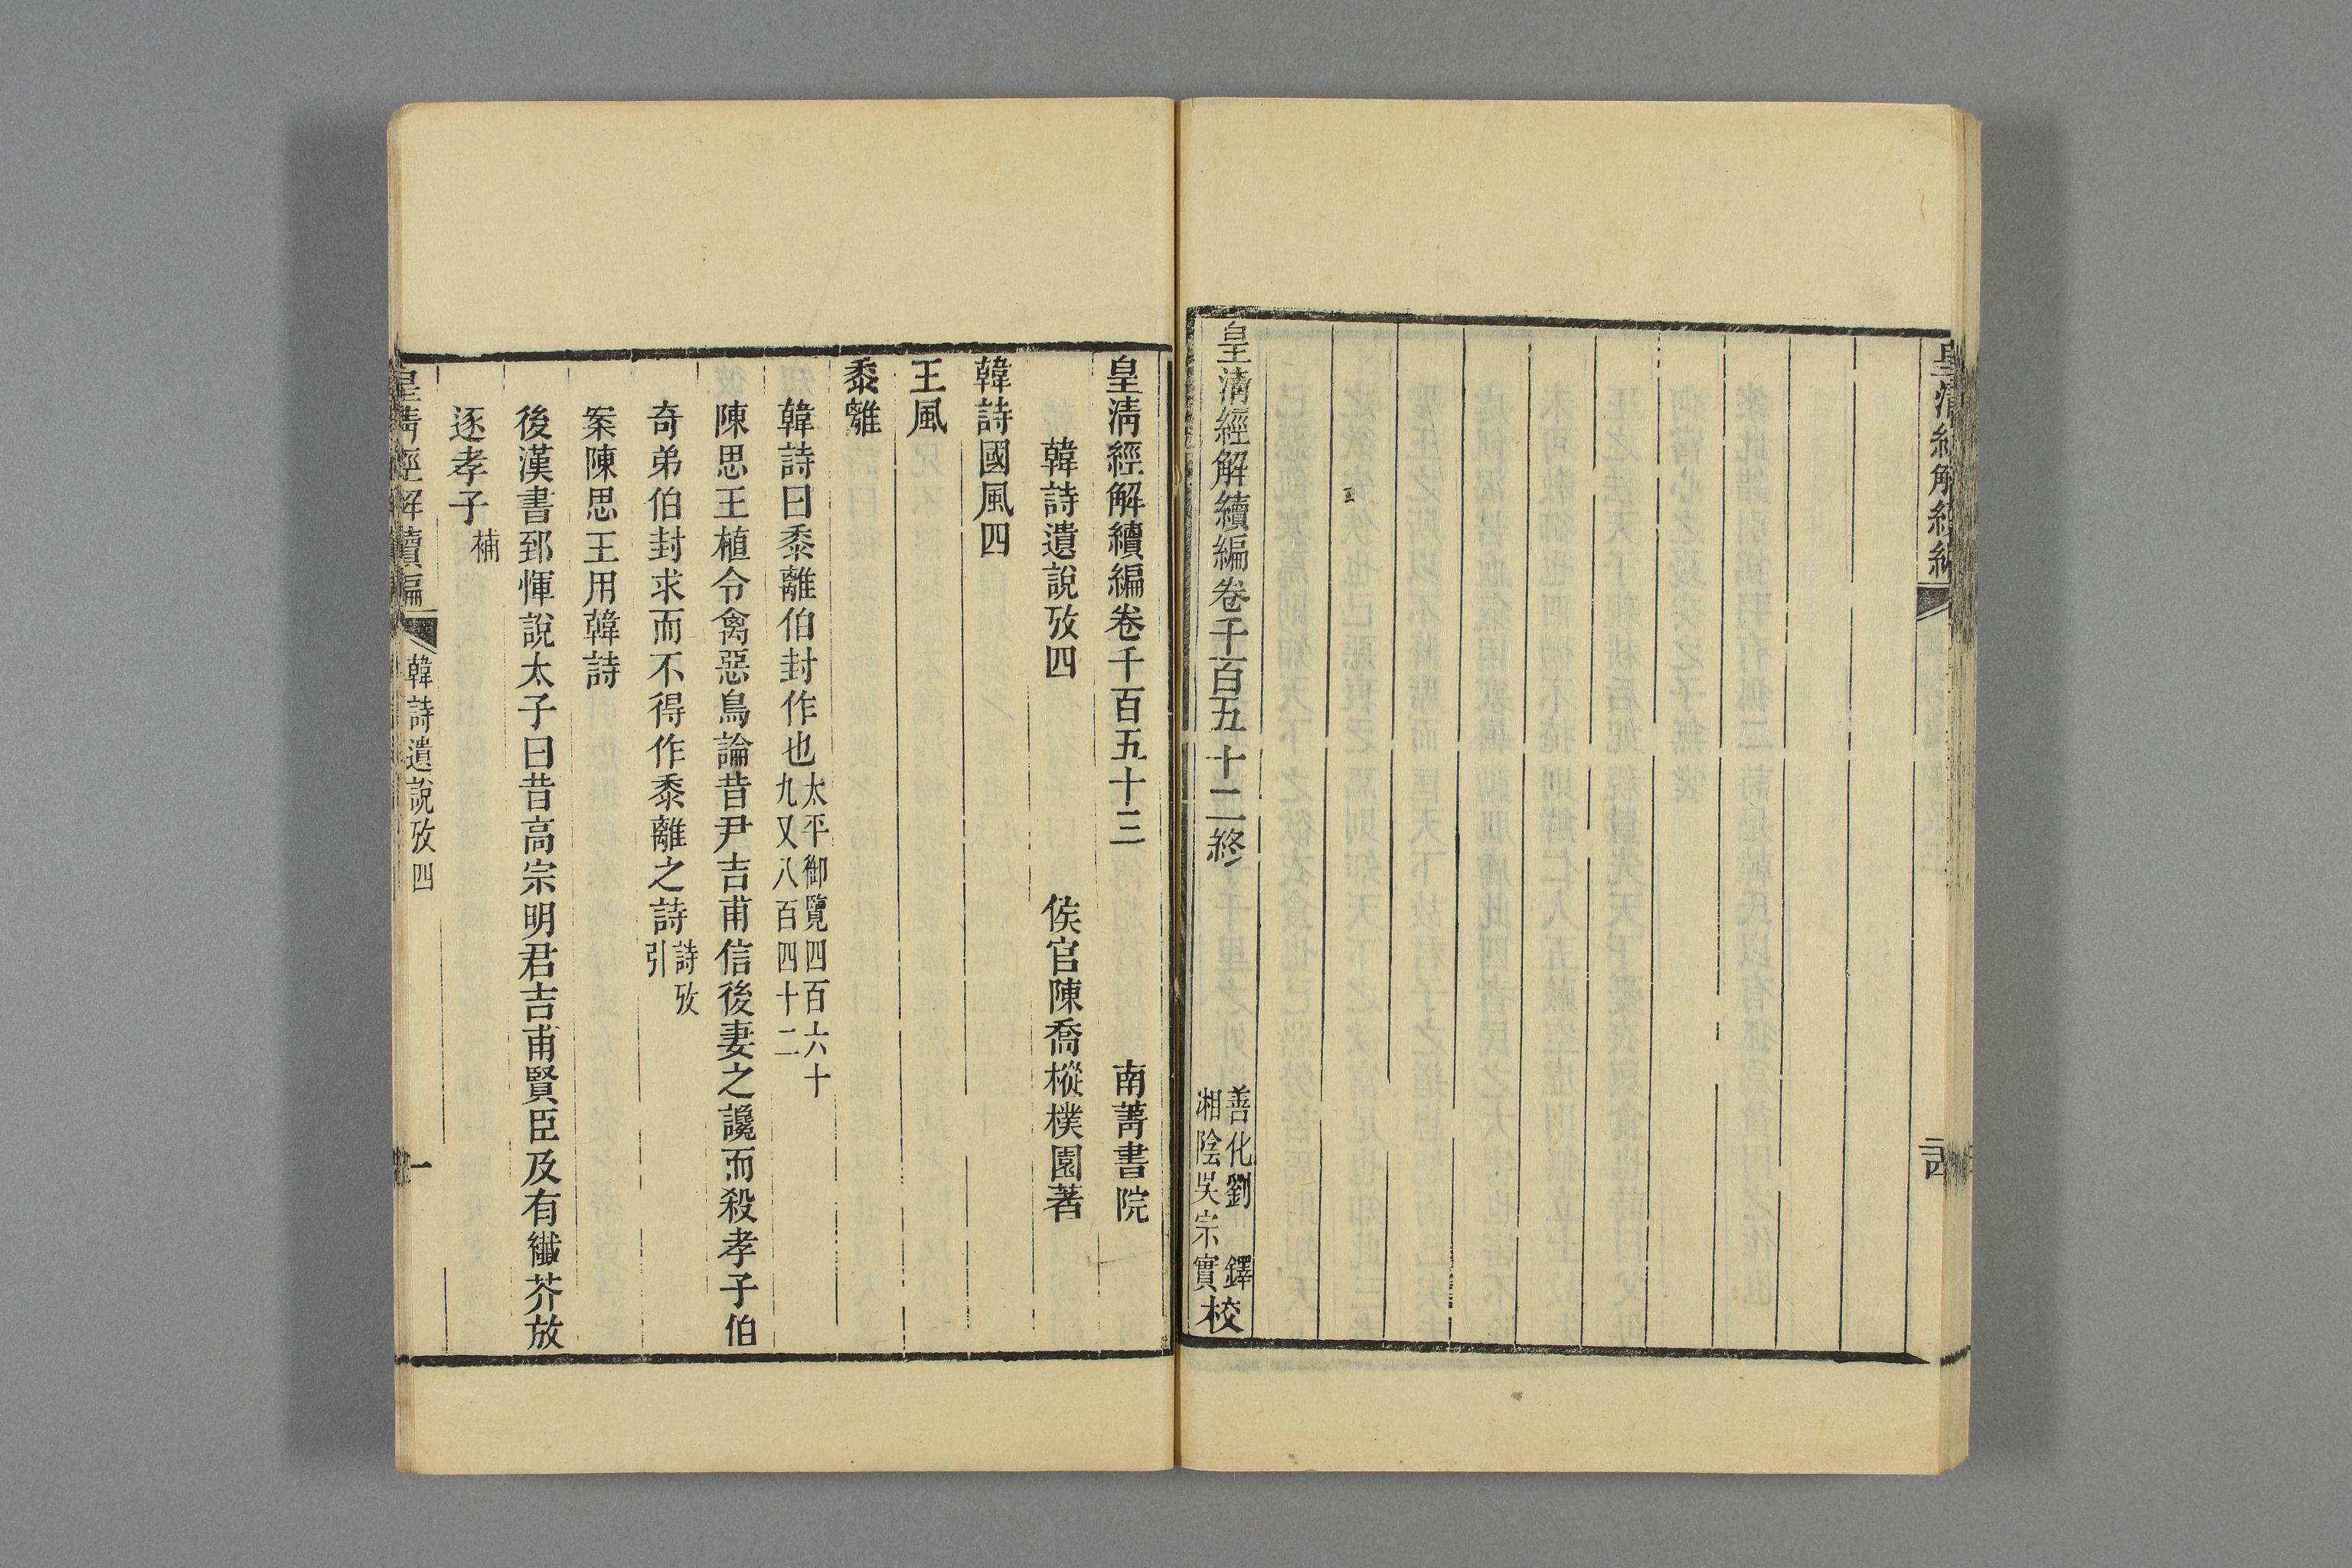 皇清經解續編
皇清經解續編卷千百五十二終
善化劉鐸
湘陰吳宗實校
皇清經解續編卷千百五十三
南菁書院
韓詩遺說攷四
侯官陳喬樅樸園著
韓詩國風四
王風
黍離
韓詩曰黍離伯封作也太平御覽四百六十九又八百四十二
陳思王植令禽惡鳥論昔尹吉甫信後妻之讒而殺孝子伯
奇弟伯封求而不得作黍離之詩詩攷引
案陳思王用韓詩
後漢書郅惲說太子曰昔高宗明君吉甫賢臣及有纖芥放
逐孝子補
皇清經解續編
韓詩遺說攷四
一